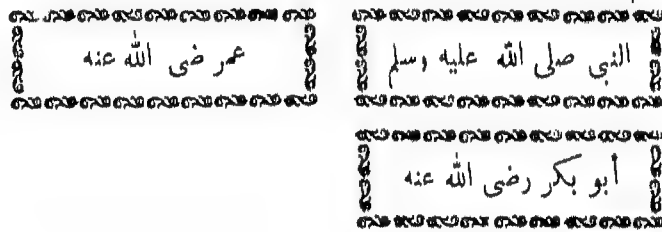 النبى صلى الله عليه وسلم
عمر رضى الله عنه
أبو بكر رضى الله عنه